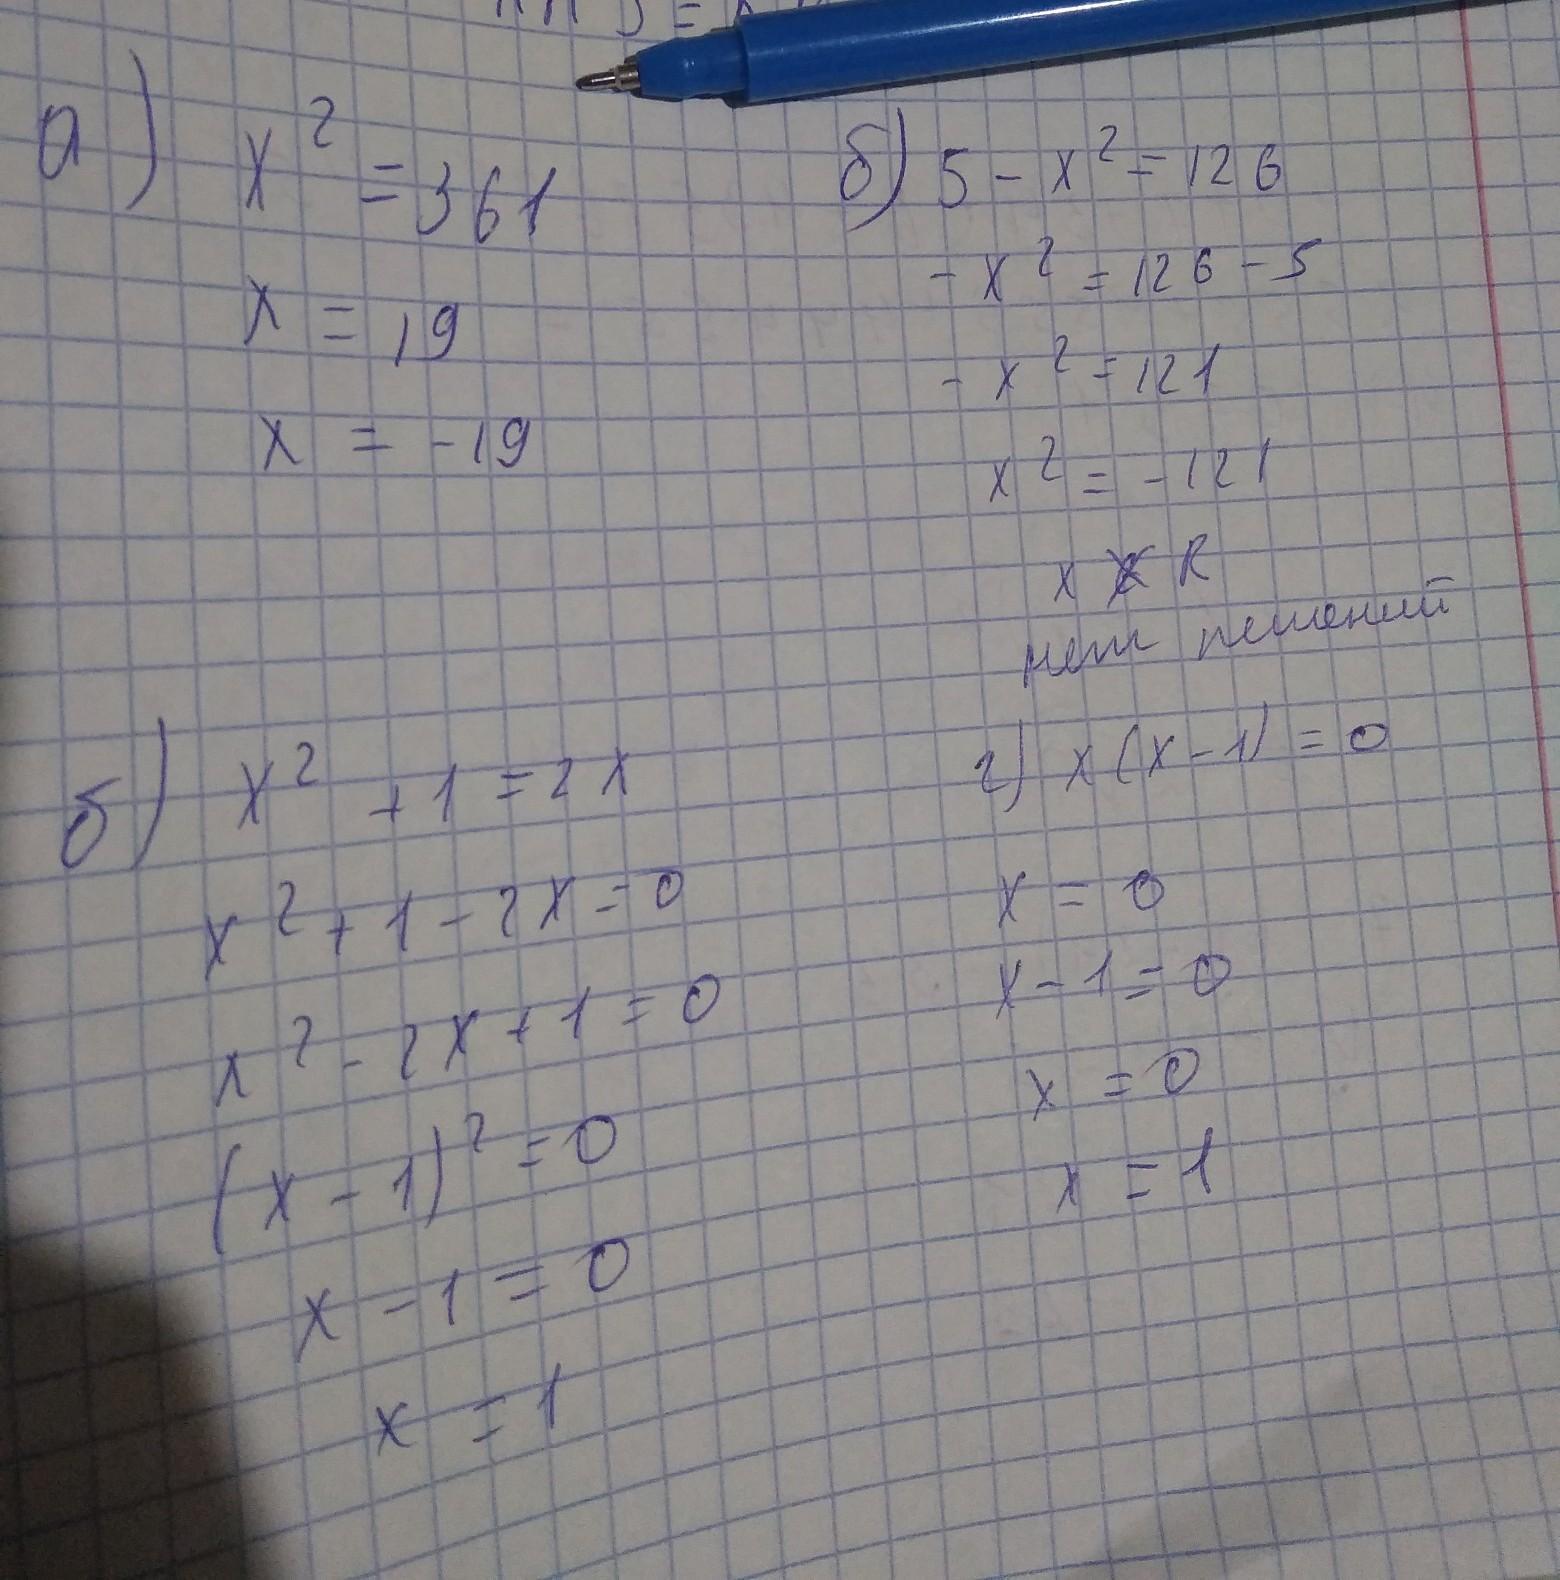 а) x² = 361
x = 19
x = -19
б) 5 - x² = 126
- x² = 126 - 5
- x² = 121
x² = -121
x ∉ R
нет решений
б) x² + 1 = 2x
x² + 1 - 2x = 0
x² - 2x + 1 = 0
(x - 1)² = 0
x - 1 = 0
x = 1
г) x(x - 1) = 0
x = 0
x - 1 = 0
x = 0
x = 1